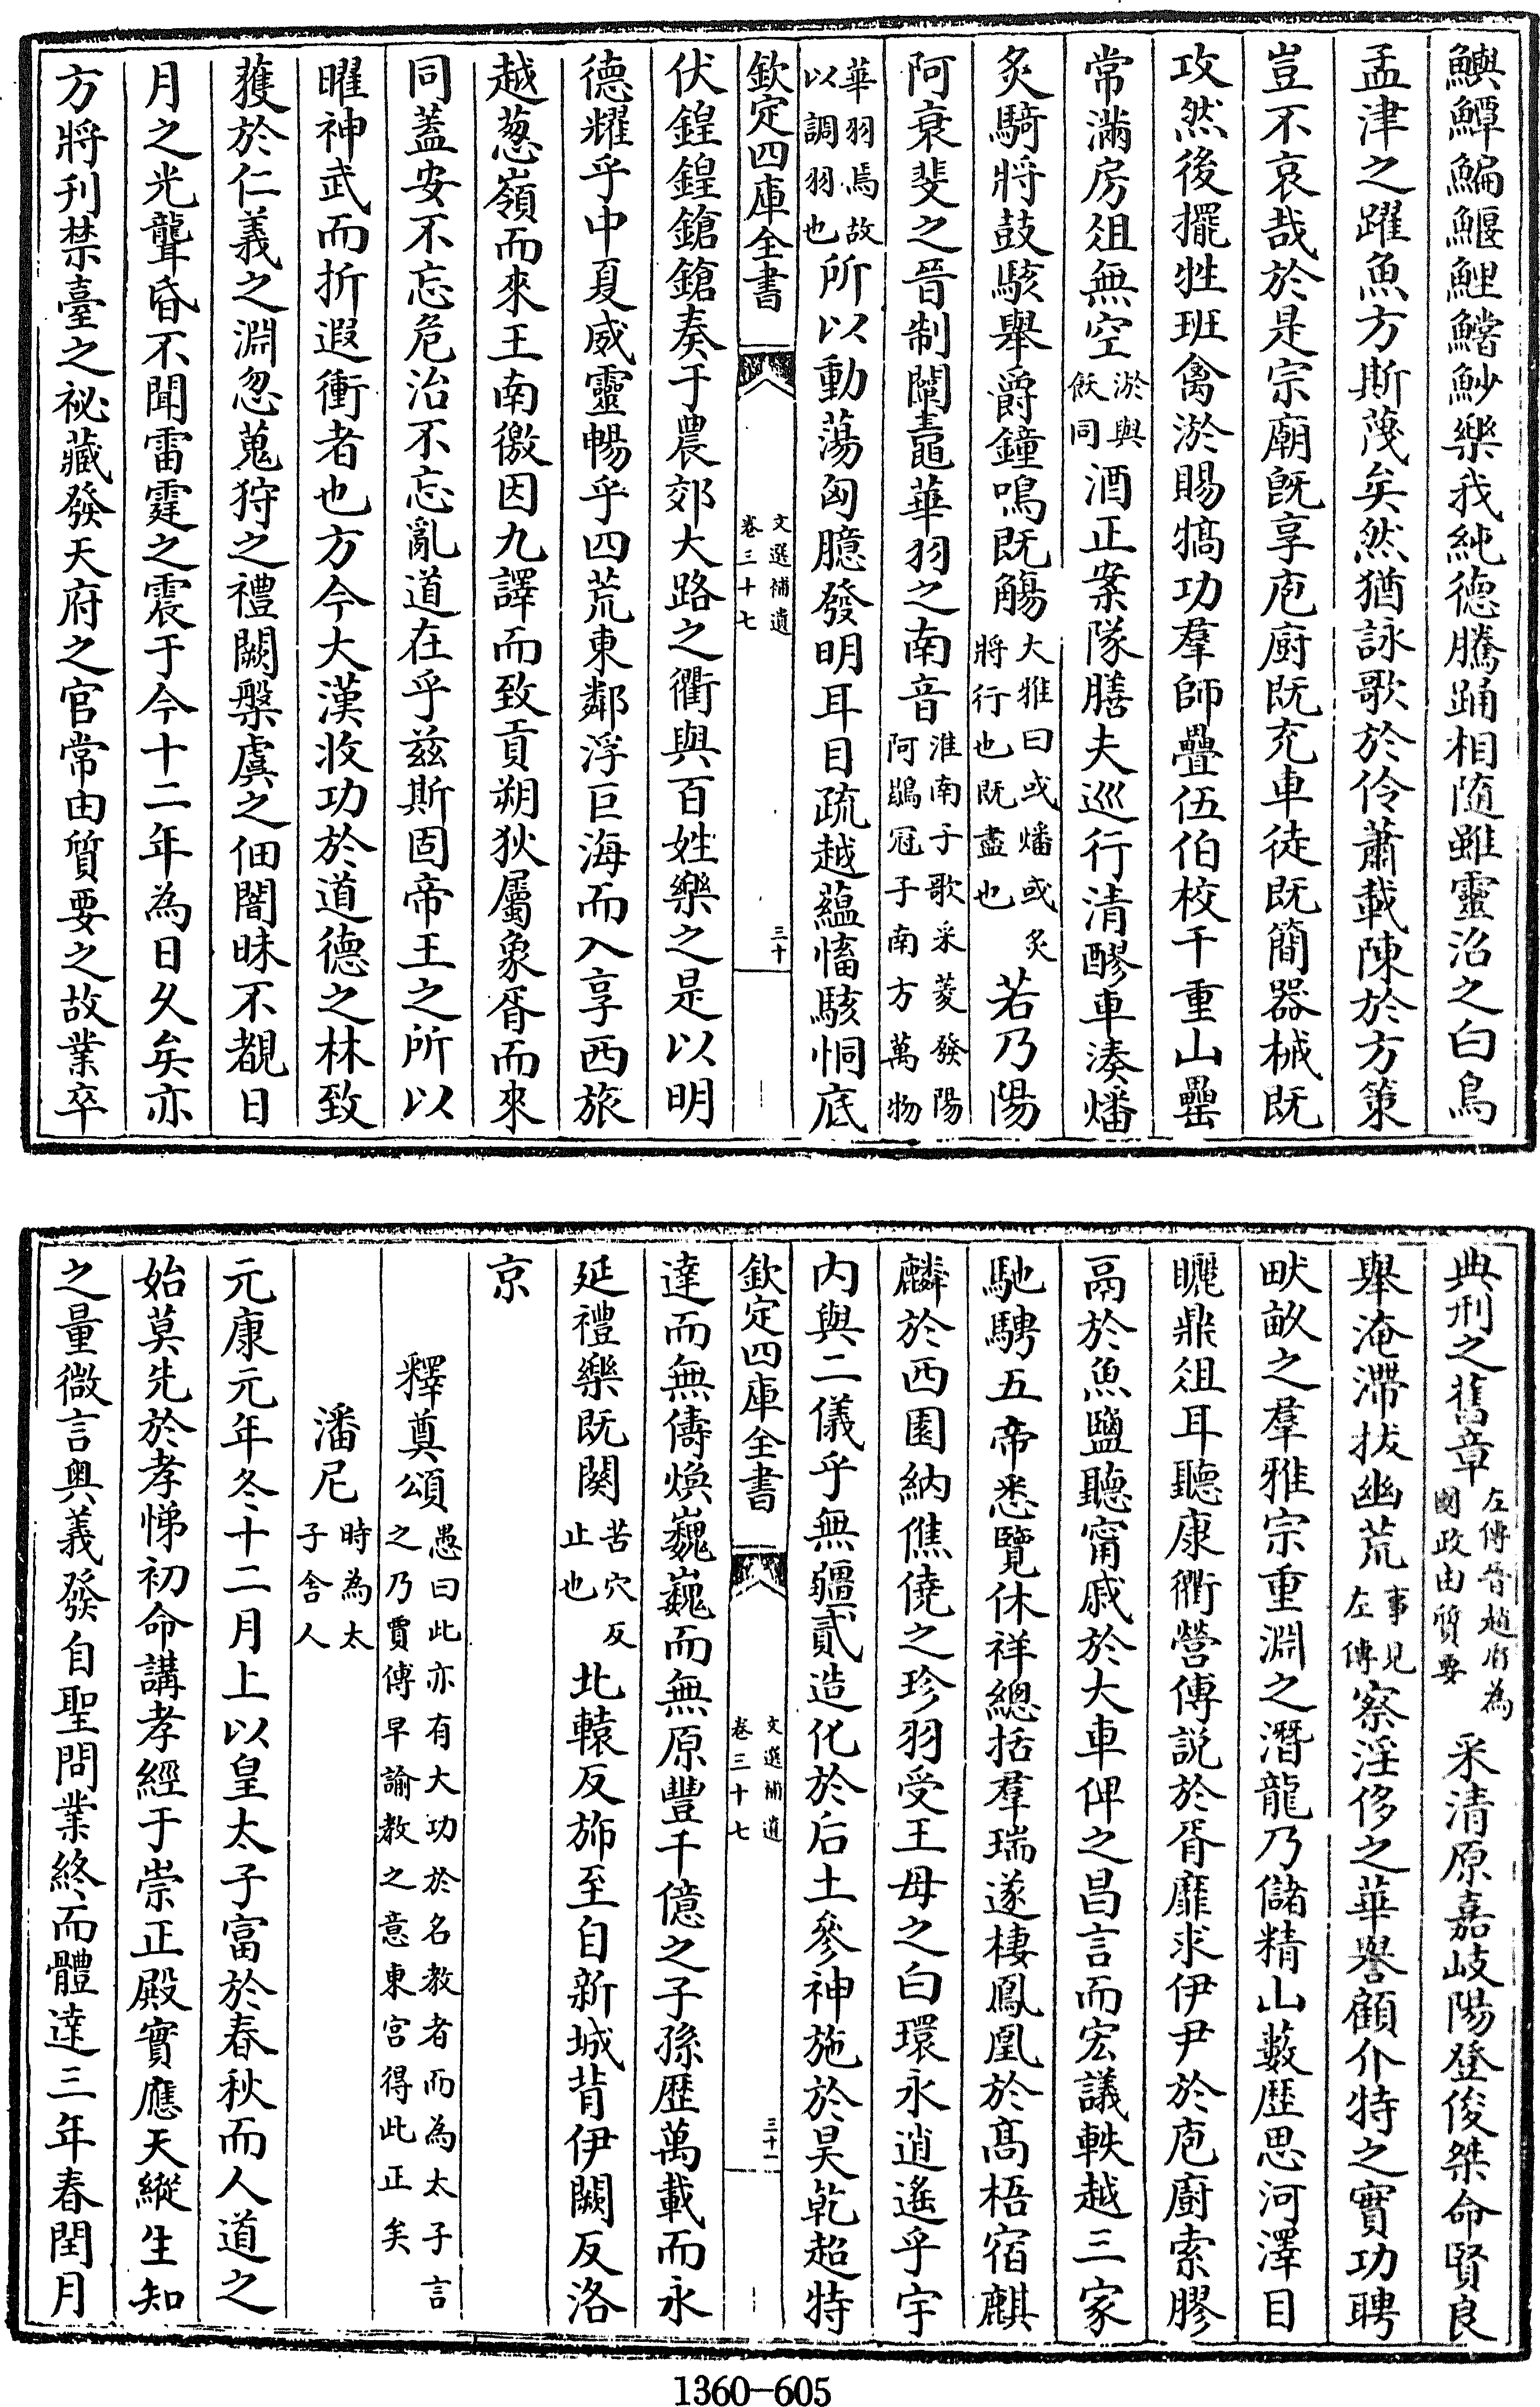 鱮鱏鯿鰋鯉鱨魦樂我純德騰踊相隨雖靈沼之白鳥
孟津之躍魚方斯蔑矣然猶詠歌於伶蕭載陳於方策
豈不哀哉於是宗廟既享庖廚既充車徒既簡器械既
攻然後擺牲班禽淤賜犒功羣師疊伍伯校千重山罍
常滿房俎無空淤與飫同酒正案隊膳夫巡行清醪車湊燔
炙騎將鼓駭舉爵鐘鳴既觴大雅曰或燔或炙將行也既盡也若乃陽
阿衰斐之晉制闡鼃華羽之南音淮南子歌采菱發陽阿鶡冠子南方萬物
華羽焉故以調羽也所以動蕩匈臆發明耳目疏越蘊慉駭恫底
欽定四庫全書 文選補遺卷三十七 三十
伏鍠鍠鎗鎗奏于農郊大路之衢與百姓樂之是以明
德耀乎中夏威靈暢乎四荒東鄰浮巨海而入享西旅
越葱嶺而來王南徼因九譯而致貢朔狄屬象胥而來
同蓋安不忘危治不忘亂道在乎兹斯固帝王之所以
曜神武而折遐衝者也方今大漢收功於道德之林致
獲於仁義之淵忽蒐狩之禮闕槃虞之佃闇昧不覩日
月之光聾昏不聞雷霆之震于今十二年為日久矣亦
方將刋禁臺之祕藏發天府之官常由質要之故業卒
典刑之舊章左傳晉趙盾為國政由質要采清原嘉岐陽登俊桀命賢良
舉淹滯拔幽荒事見左傳察淫侈之華譽顧介特之實功聘
畎畝之羣雅宗重淵之潛龍乃儲精山藪歷思河澤目
矖鼎俎耳聽康衢營傅説於胥靡求伊尹於庖廚索膠
鬲於魚鹽聽甯戚於大車俾之昌言而宏議軼越三家
馳騁五帝悉覽休祥總括羣瑞遂棲鳳凰於高梧宿麒
麟於西園納僬僥之珍羽受王母之白環永逍遙乎宇
内與二儀乎無疆貳造化於后土參神施於昊乾超特
欽定四庫全書 文選補遺卷三十七 三十一
達而無儔煥巍巍而無原豐千億之子孫歷萬載而永
延禮樂既闋苦穴反止也北轅反斾至自新城背伊闕反洛
京
釋奠頌愚曰此亦有大功於名教者而為太子言之乃賈傅早諭教之意東宮得此正矣
潘尼時為太子舍人
元康元年冬十二月上以皇太子富於春秋而人道之
始莫先於孝悌初命講孝經于崇正殿實應天縱生知
之量微言奧義發自聖問業終而體達三年春閏月
1360-605